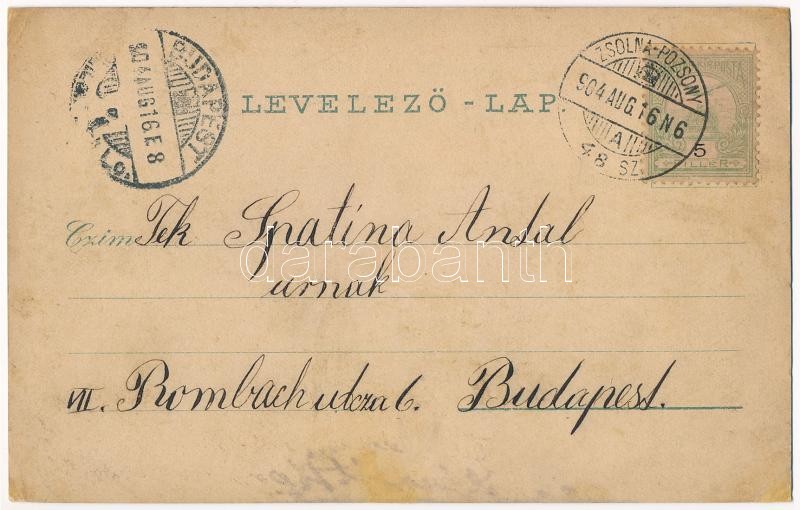 BUDAPEST
904 AUG 16 E 8
LEVELEZŐ - LAP
ZSOLNA-POZSONY
904 AUG. 16 N 6
A
48 SZ.
5
FILLER
Czim Tek Spatina Antal
urnak
VII. Rombach utcza 6. Budapest.
darabanth